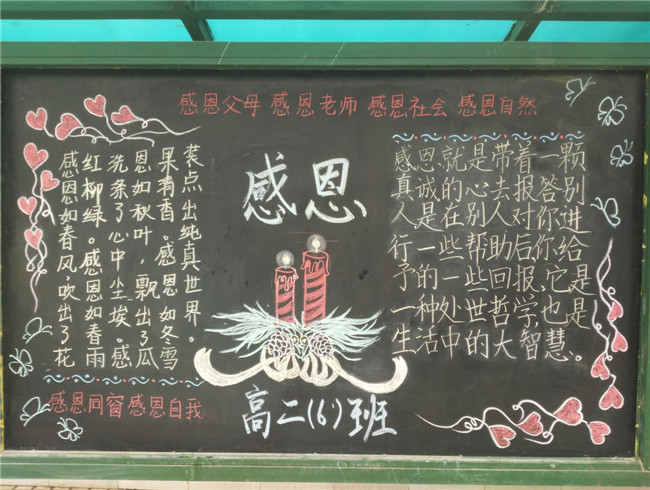 感恩父母 感恩老师 感恩社会 感恩自然
感恩如春风,吹出了花
红柳绿。感恩如春雨
洗涤了心中尘埃。感
恩如秋叶,飘出了瓜
果香。感恩如冬雪
装点出纯真世界。
感恩同窗 感恩自我
感恩
高二(6)班
感恩就是带着一颗
真诚的心去报答别
人,是在别人对你进
行一些帮助后,你给
予的一些回报,它是
一种处世哲学,也是
生活中的大智慧。